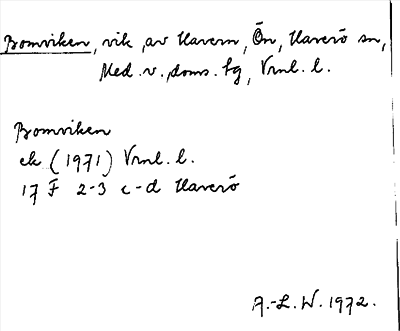 Bomviken, vik, av Havern, Ön, Haverö sn,
Med. v., doms. tg, Vrnl. l.
Bomviken
ek (1971) Vrnl. l.
17 F 2-3 c-d Haverö
A.-L. W. 1972.